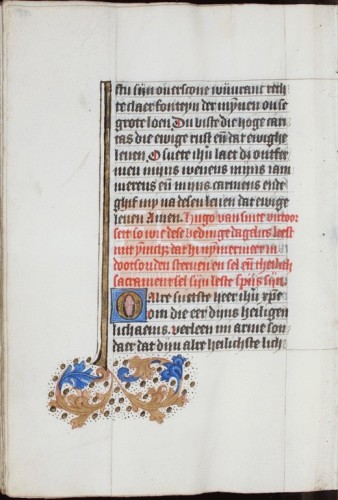 stu sijn ouerscone wijnrant rech
te claer fonteyn der mynnen onse
grote loen. Du biste die hoge cari
tas die ewige rust en dat ewighe
leuen. O suete ihu laet di ontfer
men mijns wenens mijns iam
merens en mijns carmens ende
ghif my na desen leuen dat ewige
leuen Amen. Hugo van sinte victoor
seit so wie dese bedinge dagelics leest
mit ynnich dat hi nymermeer in
dootsonden steruen en sel en theilich
sacrament sel sijn leste spijs sijn.
O alre suetste heer ihu xpe
om die eer dijns heiligen
lichaems. verleen mi arme son
daer dat dijn alre heilichste lich